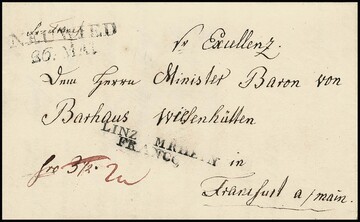 NEUWIED
26. MAI
Sr Excellenz.
Dem Herrn Minister Baron von
Barhaus Wisenhütten
LINZ A/RHEIN
FRANCO
in
fro 3½.
Francfurt a/main.